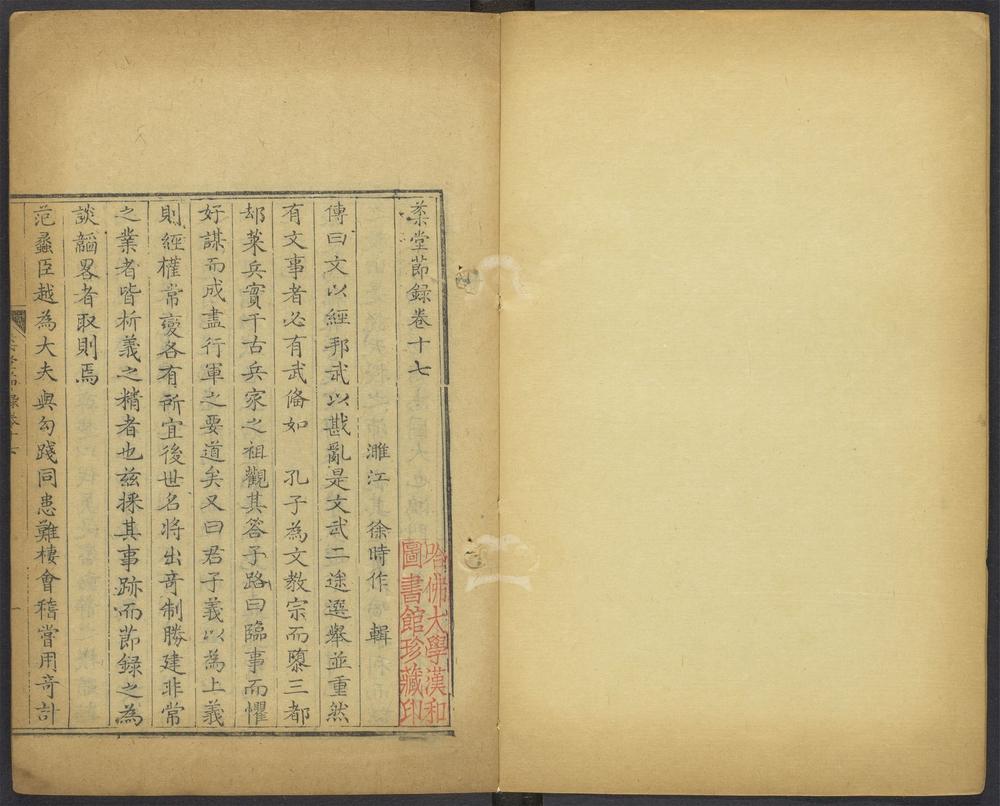 菉堂節録卷十七
濉江 徐時作 輯
傳曰文以經邦武以戡亂是文武二途選舉並重然
有文事者必有武俻如 孔子為文教宗而隳三都
却萊兵實千古兵家之祖觀其答子路曰臨事而懼
好謀而成盡行軍之要道矣又曰君子義以為上義
則經權常變各有所宜後世名將出竒制勝建非常
之業者皆析義之精者也兹採其事跡而節録之為
談韜畧者取則焉
范蠡臣越為大夫與勾踐同患難棲會稽嘗用竒計
哈佛大學漢和
圖書館珍藏印